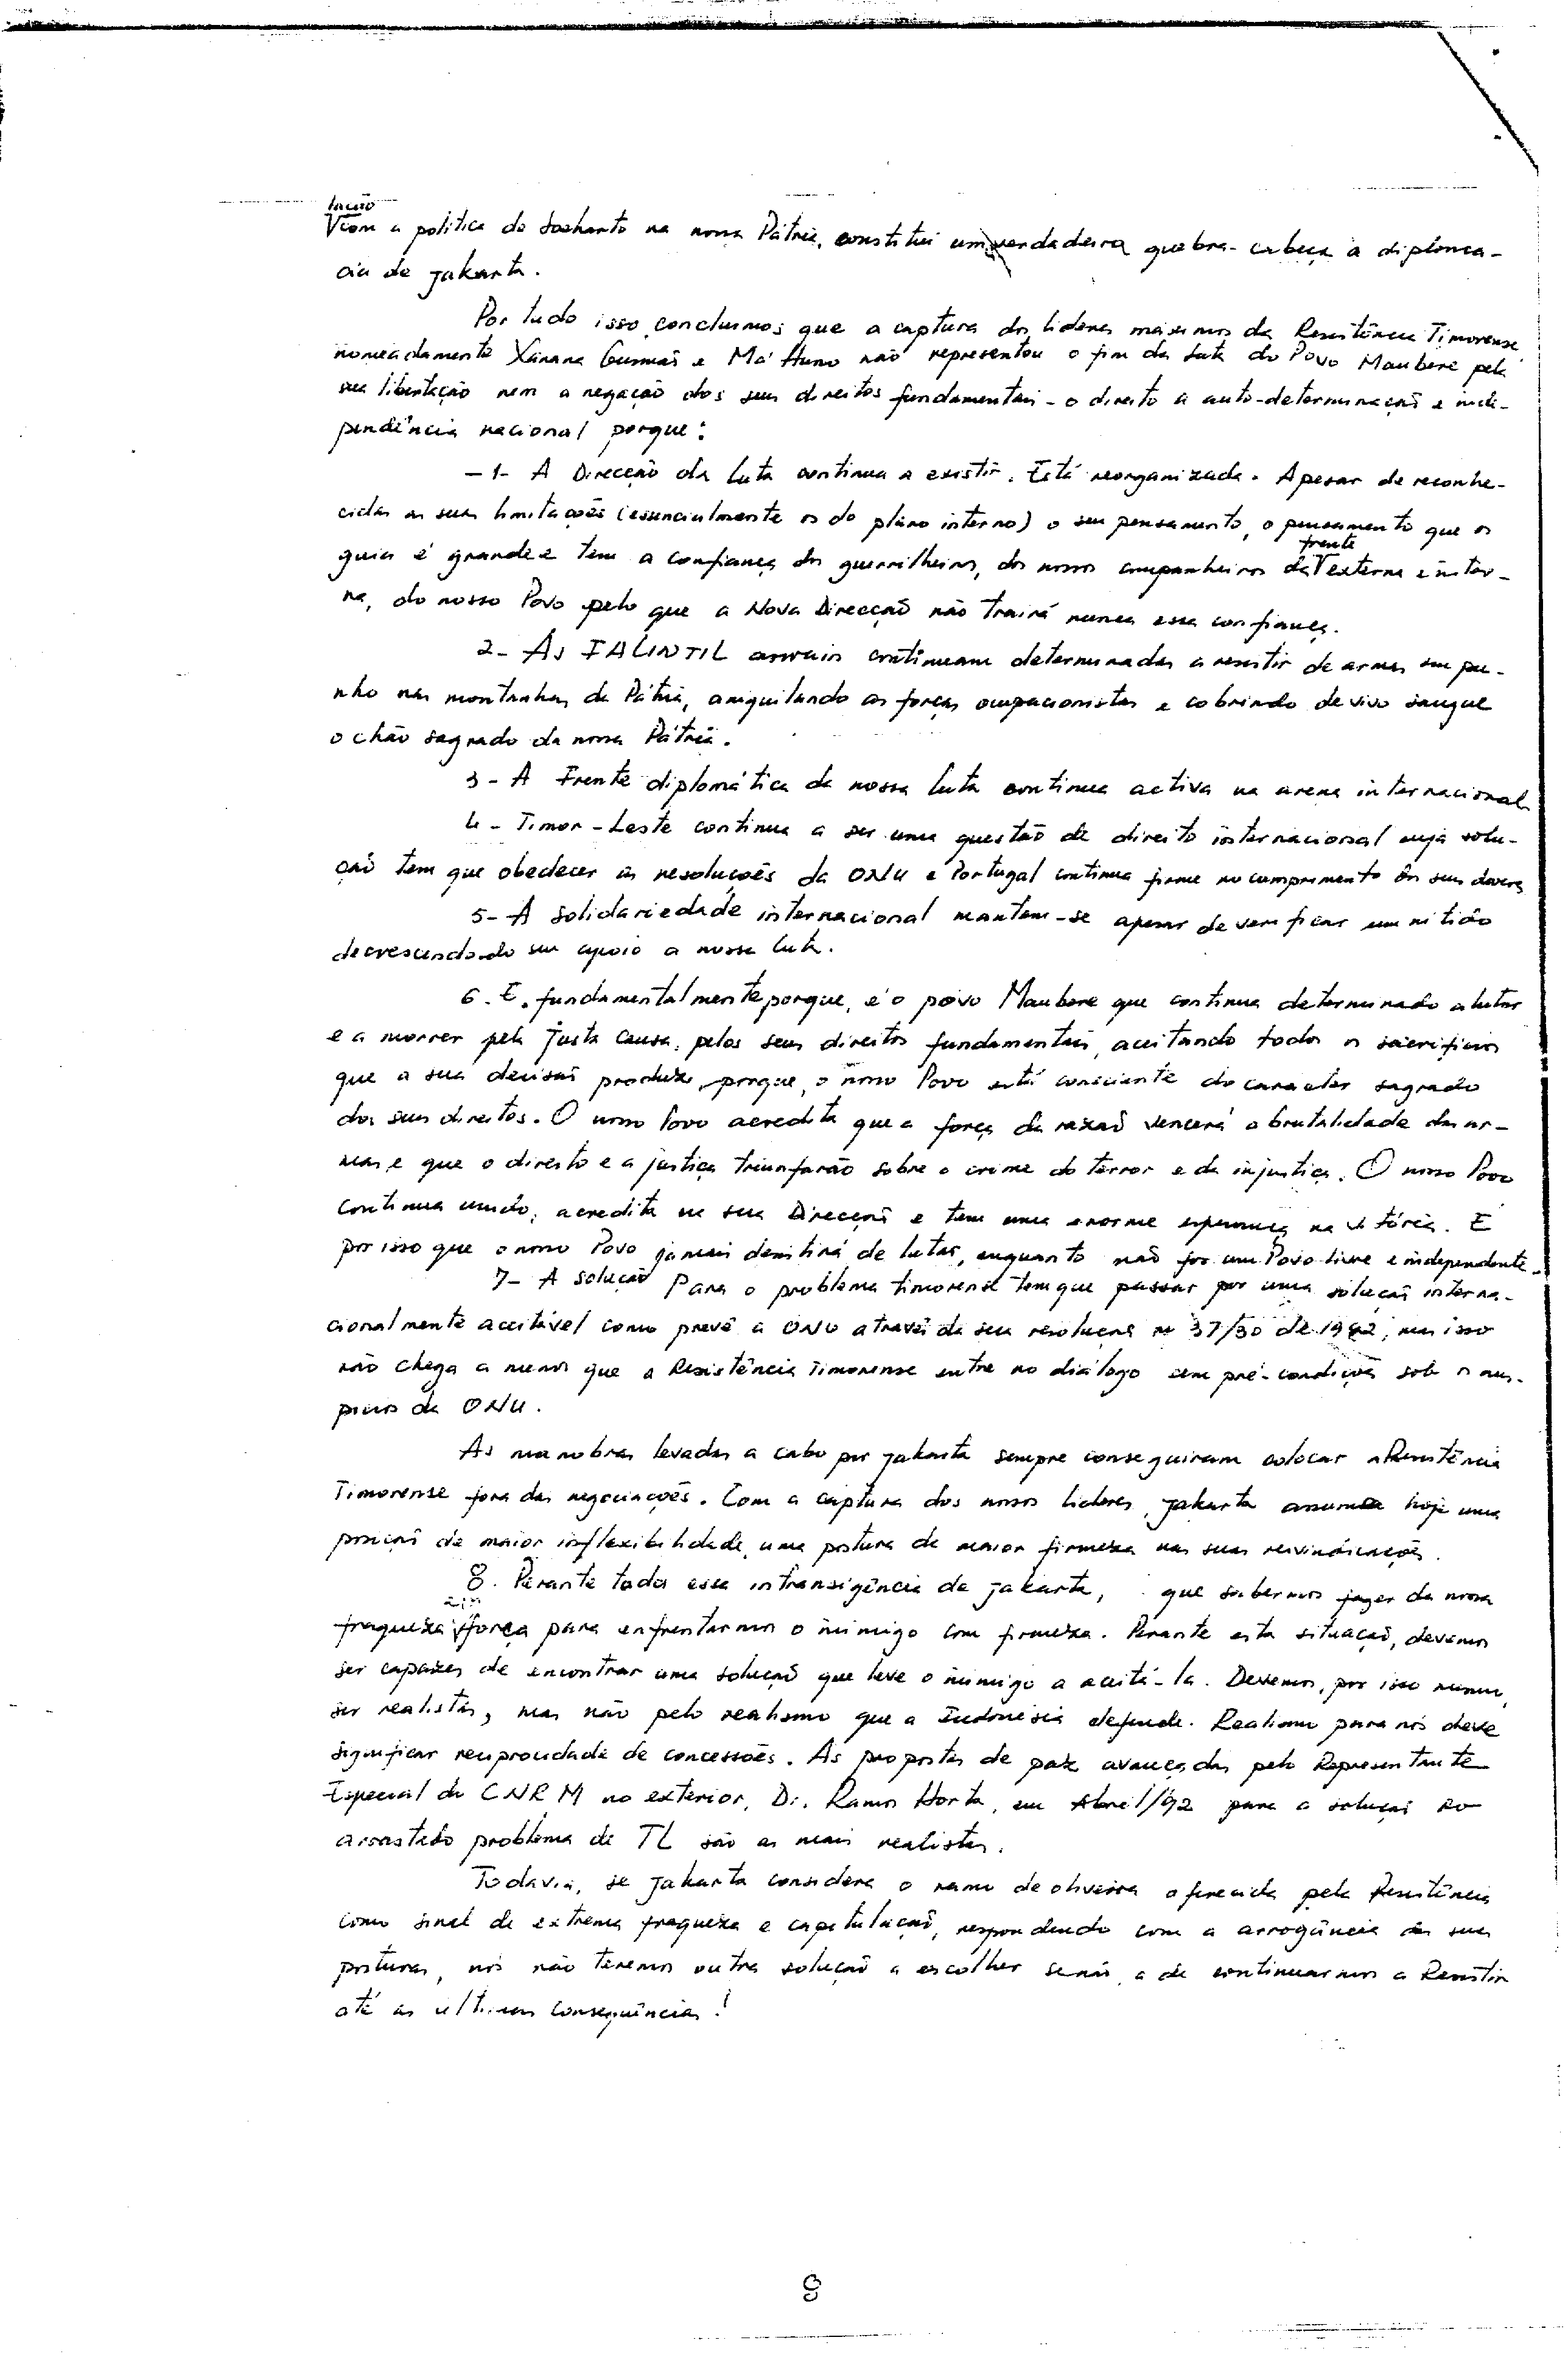 lação
com a política de Soeharto na nossa Pátria, constitui um verdadeira quebra-cabeça à diploma-
cia de Jakarta.
Por tudo isso concluimos que a captura dos líderes máximos da Resistência Timorense
nomeadamente Xanana Gusmão e Ma'Huno não representou o fim da luta do Povo Maubere pela
sua libertação nem a negação dos seus direitos fundamentais - o direito à auto-determinação e inde-
pendência nacional porque:
-1- A Direcção da luta continua a existir. Está reorganizada. Apesar de reconhe-
cidas as suas limitações (essencialmente os do plano interno) o seu pensamento, o pensamento que os
guia é grande e tem a confiança dos guerrilheiros, dos nossos companheiros da frente externa e inter-
na, do nosso Povo pelo que a Nova Direcção não trairá nunca essa confiança.
2- As FALINTIL continuam determinadas a resistir de armas em pu-
nho nas montanhas da Pátria, aniquilando as forças ocupacionistas e cobrindo de vivo sangue
o chão sagrado da nossa Pátria.
3- A Frente diplomática da nossa luta continua activa na arena internacional
4- Timor-Leste continua a ser uma questão de direito internacional cuja solu-
ção tem que obedecer às resoluções da ONU e Portugal continua firme no cumprimento dos seus deveres
5- A solidariedade internacional mantem-se apesar de verificar um nítido
decrescendo do seu apoio a nossa luta.
6. E, fundamentalmente porque, é o povo Maubere que continua determinado a lutar
e a morrer pela justa causa, pelos seus direitos fundamentais, aceitando todos os sacrifícios
que a sua decisão produza, porque, o nosso Povo está consciente do caracter sagrado
dos seus direitos. O nosso Povo acredita que a força da razão vencerá a brutalidade das ar-
mas e que o direito e a justiça triunfarão sobre o crime do terror e da injustiça. O nosso Povo
continua unido, acredita na sua Direcção e tem uma enorme esperança na vitória. E
por isso que o nosso Povo jamais desitirá de lutar, enquanto não for um Povo livre e independente.
7- A solução para o problema timorense tem que passar por uma solução interna-
cionalmente aceitável como prevê a ONU através da sua resolução nº 37/30 de 1982, mas isso
não chega a menos que a Resistência Timorense entre no diálogo sem pré-condições sob os aus-
picios da ONU.
As manobras levadas a cabo por Jakarta sempre conseguiram colocar a Resistência
Timorense fora das negociações. Com a captura dos nossos líderes, Jakarta assume hoje uma
posição de maior inflexibilidade, uma postura de maior firmeza nas suas reivindicações.
8. Perante toda essa intransigência de Jakarta, que saibamos fazer da nossa
fraqueza a força para enfrentarmos o inimigo com firmeza. Perante esta situação, devemos
ser capazes de encontrar uma solução que leve o inimigo a aceitá-la. Devemos, por isso mesmo,
ser realistas, mas não pelo realismo que a Indonésia defende. Realismo para nós deve
significar reciprocidade de concessões. As propostas de paz avançadas pelo Representante
Especial do CNRM no exterior, Dr. Ramos Horta, em Abril/92 para a solução do
arrastado problema de TL são as mais realistas.
Todavia, se Jakarta considera o ramo de oliveira oferecida pela Resistência
como sinal de extrema fraqueza e capitulação, respondendo com a arrogância das suas
posturas, nós não teremos outra solução a escolher senão, a de continuarmos a Resistir
até às últimas consequências!
8